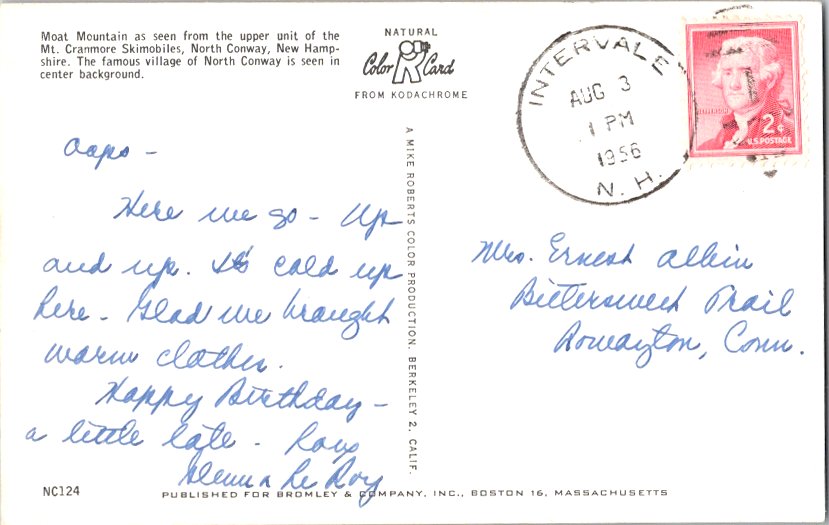 Moat Mountain as seen from the upper unit of the
Mt. Cranmore Skimobiles, North Conway, New Hamp-
shire. The famous village of North Conway is seen in
center background.
NATURAL
Color Card
FROM KODACHROME
INTERVALE
AUG 3
1 PM
1956
N. H.
JEFFERSON
2¢
U.S. POSTAGE
Oops -
Here we go - Up
and up. It's cold up
here - Glad we brought
warm clothes.
Happy Birthday -
a little late - Love
Glenn & Le Roy
A MIKE ROBERTS COLOR PRODUCTION. BERKELEY 2, CALIF.
Mrs. Ernest Albin
Bittersweet Trail
Rowayton, Conn.
NC124
PUBLISHED FOR BROMLEY & COMPANY, INC., BOSTON 16, MASSACHUSETTS